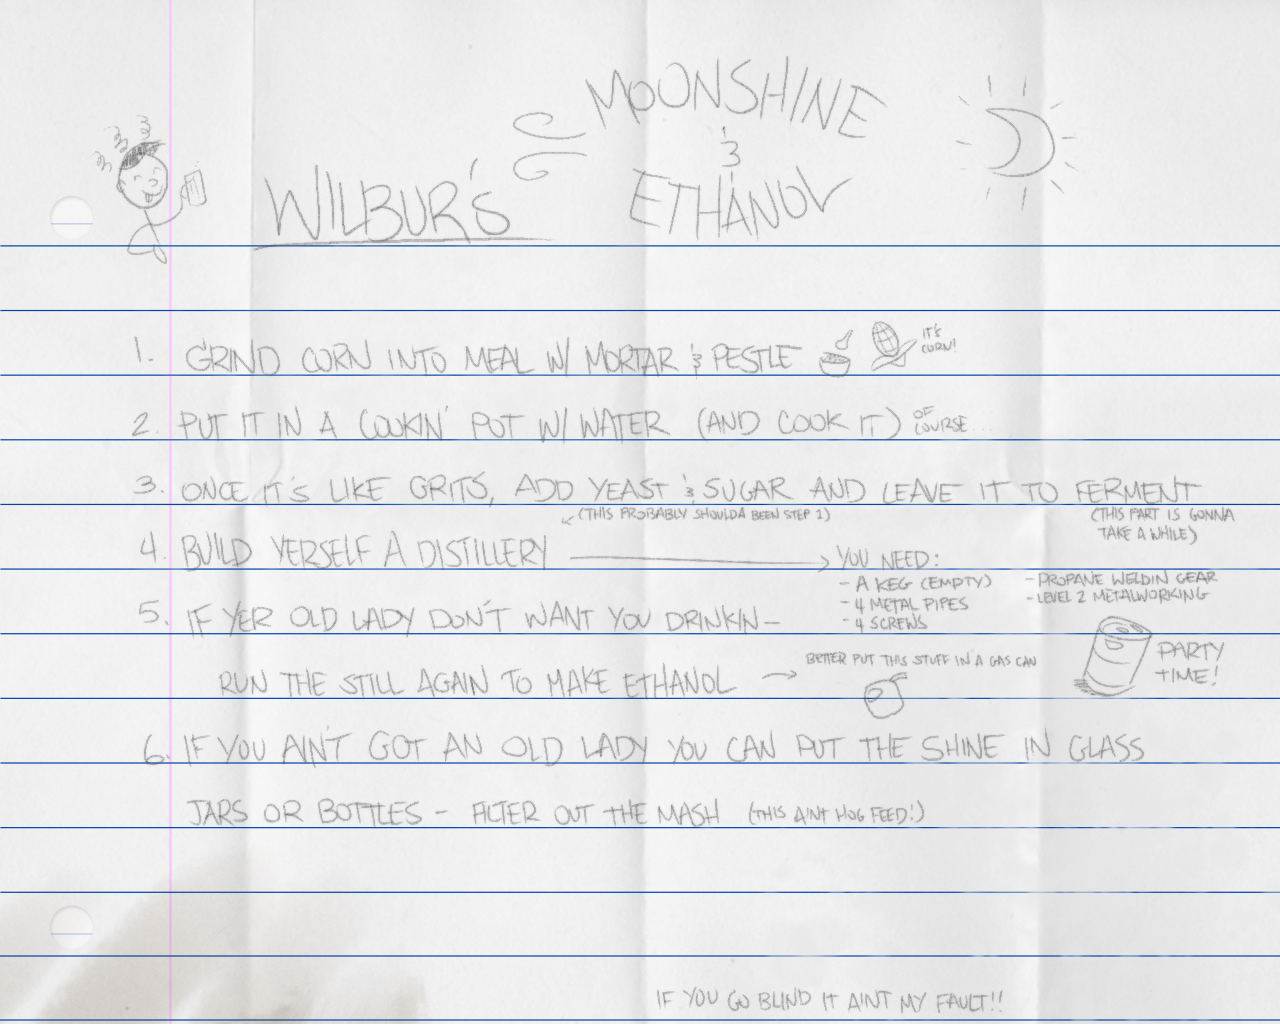 MOONSHINE
&
WILBUR'S ETHANOL
1. GRIND CORN INTO MEAL W/ MORTAR & PESTLE IT'S CORN!
2. PUT IT IN A COOKIN' POT W/ WATER (AND COOK IT) OF COURSE...
3. ONCE IT'S LIKE GRITS, ADD YEAST & SUGAR AND LEAVE IT TO FERMENT
(THIS PROBABLY SHOULDA BEEN STEP 1)
(THIS PART IS GONNA
TAKE A WHILE)
4. BUILD YERSELF A DISTILLERY
YOU NEED:
- A KEG (EMPTY)
- 4 METAL PIPES
- 4 SCREWS
- PROPANE WELDIN GEAR
- LEVEL 2 METALWORKING
5. IF YER OLD LADY DON'T WANT YOU DRINKIN-
RUN THE STILL AGAIN TO MAKE ETHANOL
BETTER PUT THIS STUFF IN A GAS CAN
PARTY
TIME!
6. IF YOU AIN'T GOT AN OLD LADY YOU CAN PUT THE SHINE IN GLASS
JARS OR BOTTLES - FILTER OUT THE MASH (THIS AIN'T HOG FEED!)
IF YOU GO BLIND IT AINT MY FAULT!!